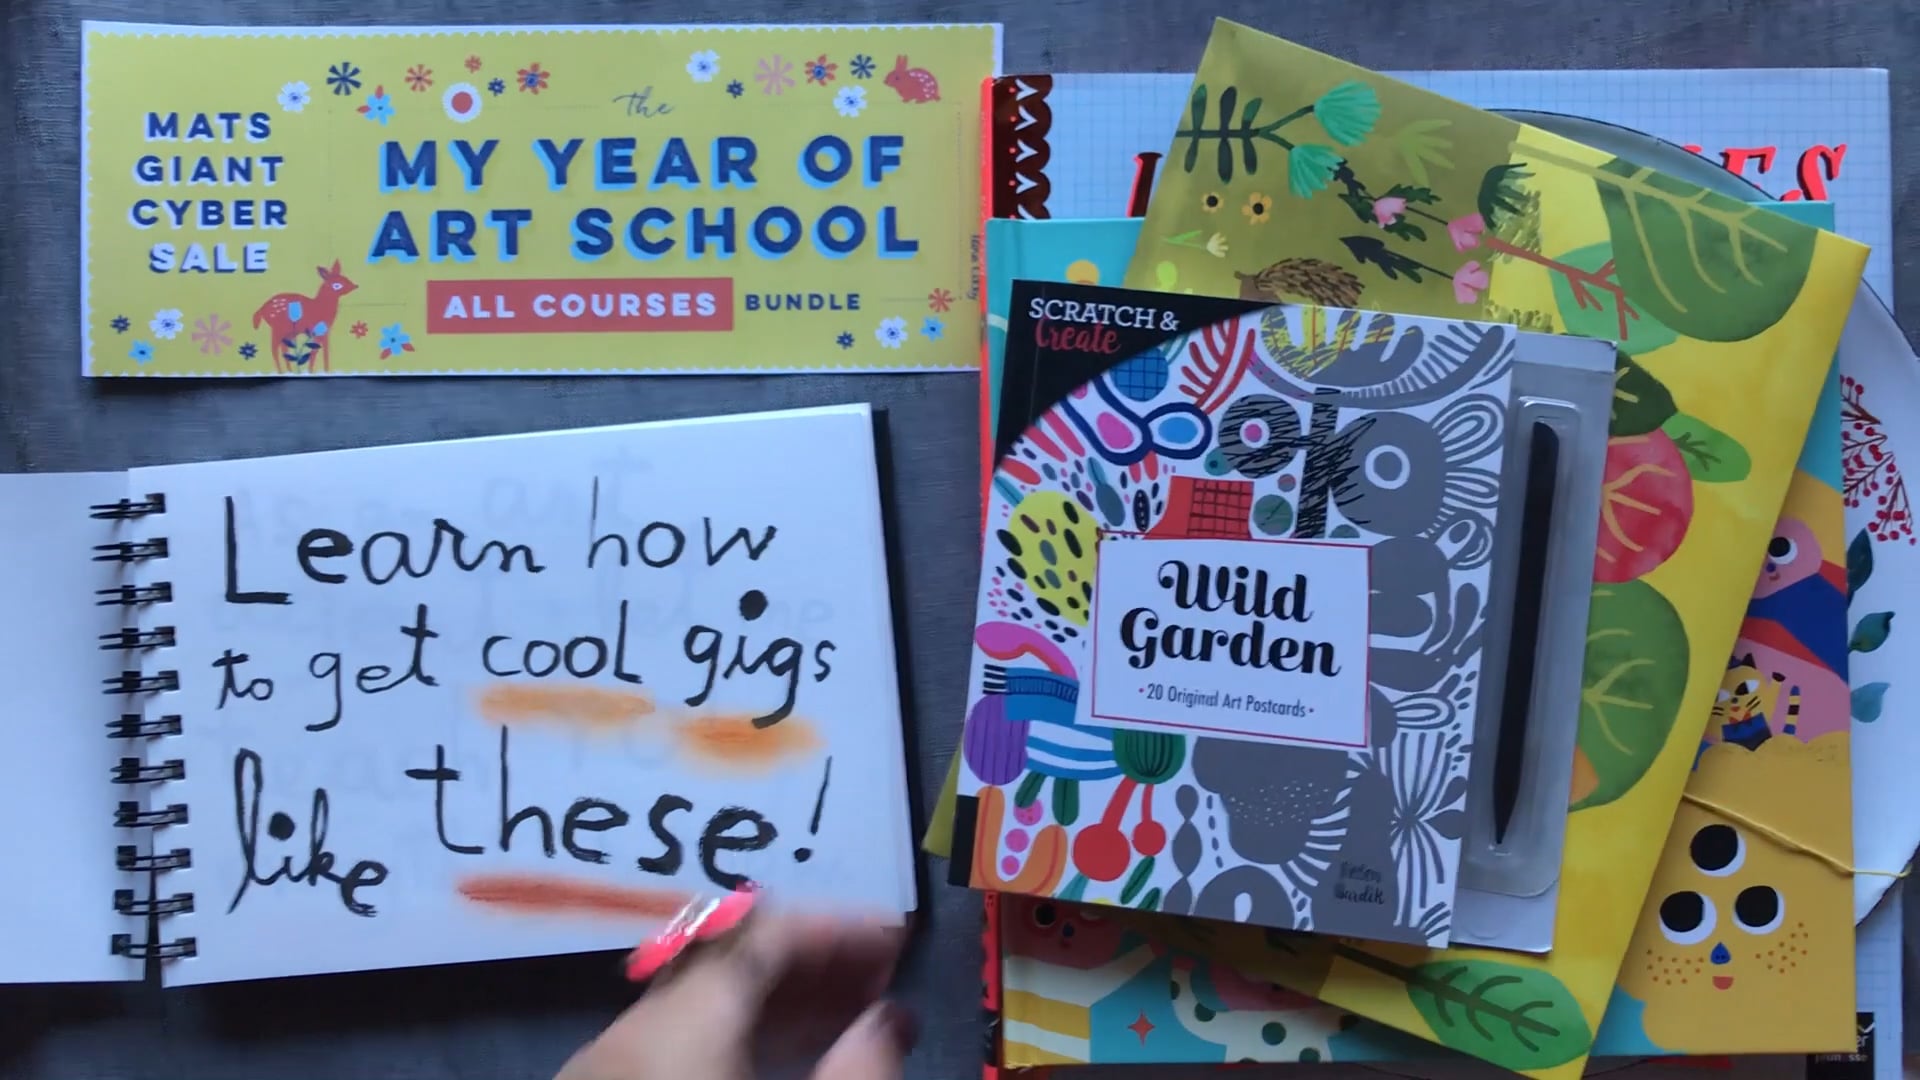 MATS
GIANT
CYBER
SALE
the
MY YEAR OF
ART SCHOOL
ALL COURSES BUNDLE
Learn how
to get cool gigs
like these!
SCRATCH &
Create
Wild
Garden
• 20 Original Art Postcards •